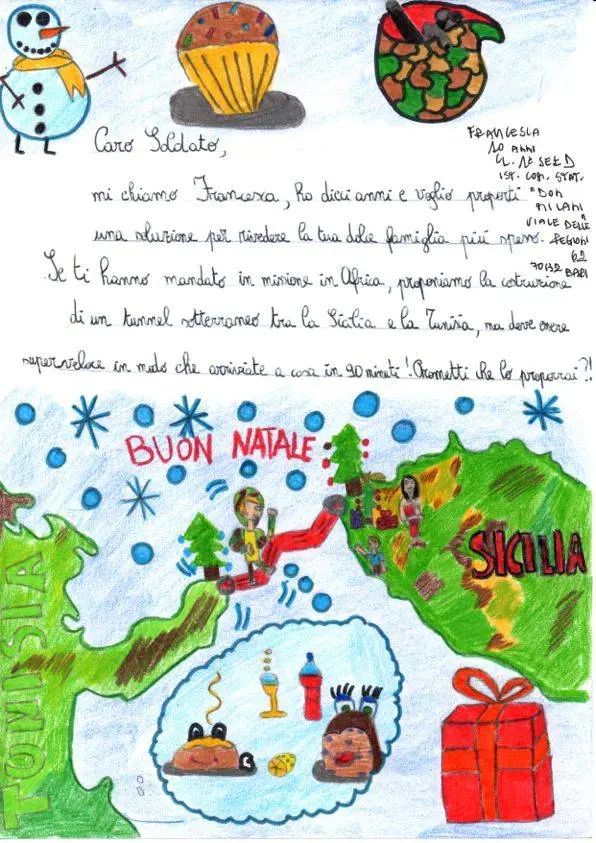 Caro Soldato,
mi chiamo Francesca, ho dieci anni e voglio proporti
una soluzione per rivedere la tua dolce famiglia più spesso.
Se ti hanno mandato in missione in Africa, proponiamo la costruzione
di un tunnel sotterraneo tra la Sicilia e la Tunisia, ma deve essere
superveloce in modo che arriviate a casa in 90 minuti! Prometti che lo proporrai?!
FRANCESCA
10 ANNI
SEZ D
IST. COM. STAT.
"DON
MILANI"
VIALE DELLE
REGIONI
62
70132 BARI
BUON NATALE
SICILIA
TUNISIA